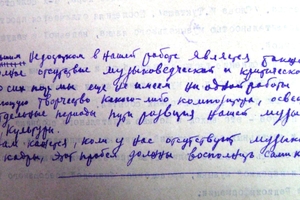 недостатком в нашей работе является
отсутствие музыковедческой и критической
до сих пор мы еще не имеем ни одной работы
творчество какого-либо композитора,
периоды пути развития нашей
культуры.
кажется, коли у нас отсутствует
кадры, этот пробел должны восполнить сами